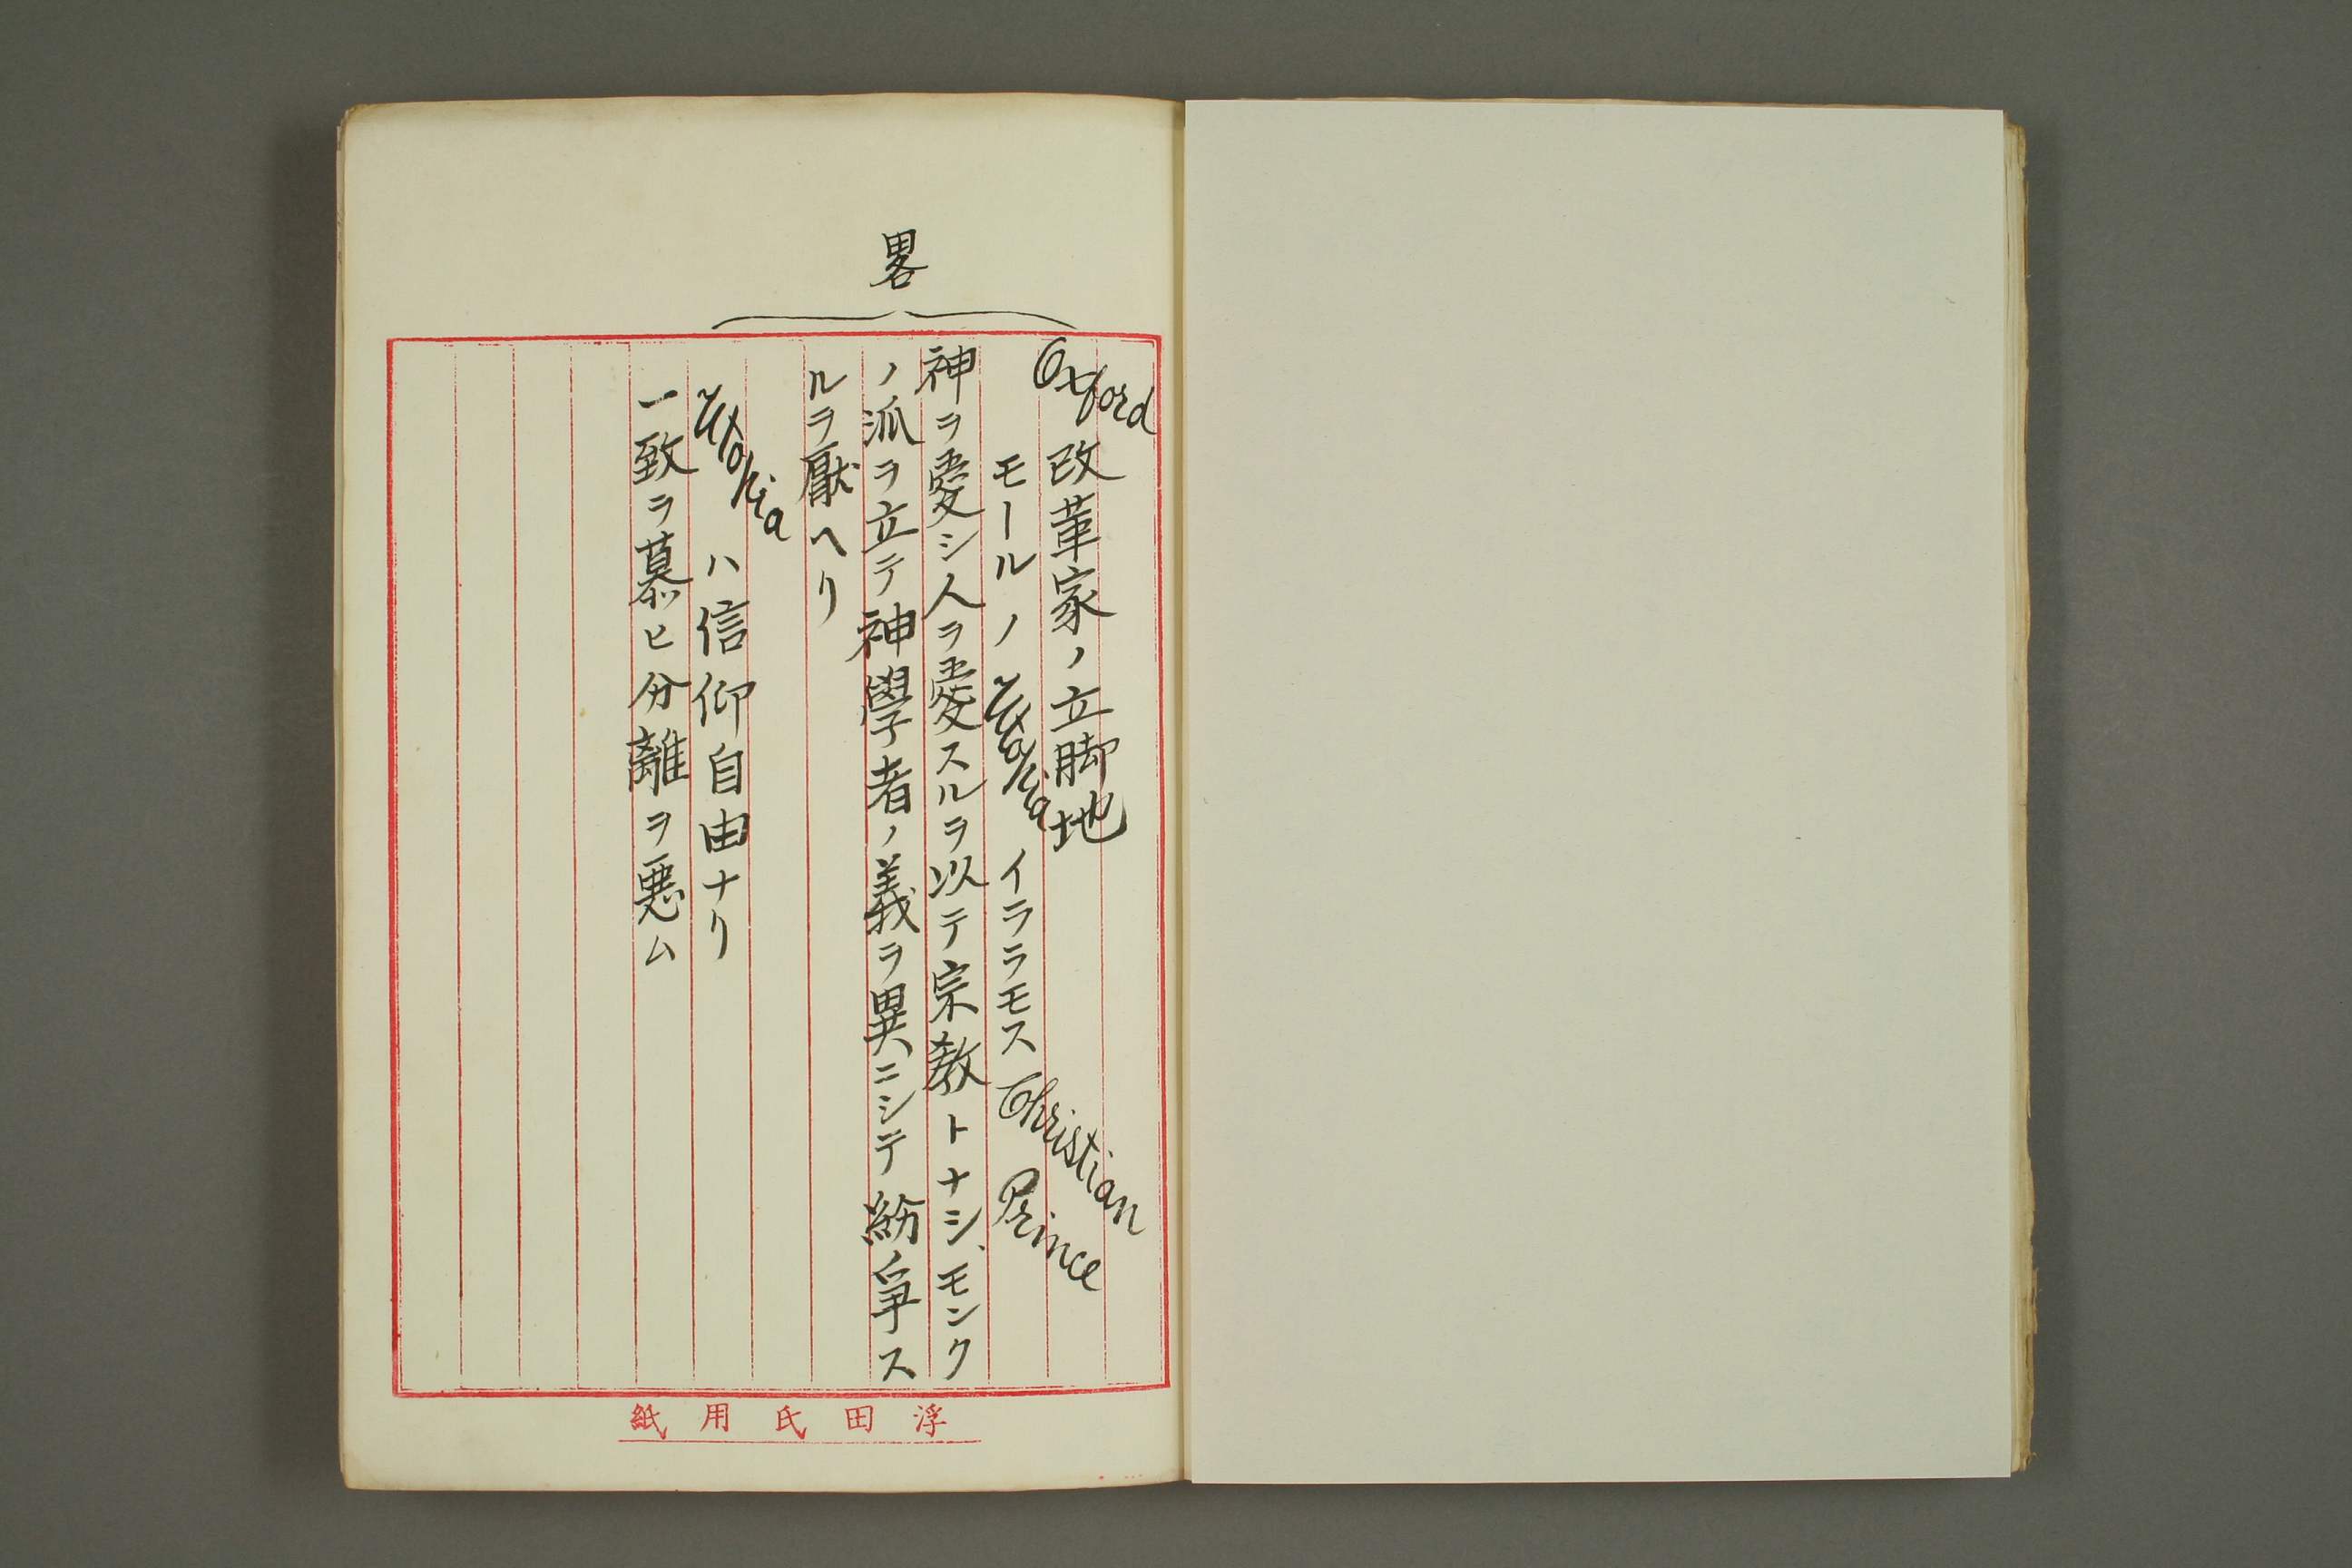 畧
Oxford 改革家ノ立脚地
モールノ Utopia イララモス Christian Prince
神ヲ愛シ人ヲ愛スルヲ以テ宗教トナシ、モンク
ノ派ヲ立テ神學者ノ義ヲ異ニシテ紛爭ス
ルヲ厭ヘリ
Utopia ハ信仰自由ナリ
一致ヲ慕ヒ分離ヲ悪ム
浮田氏用紙